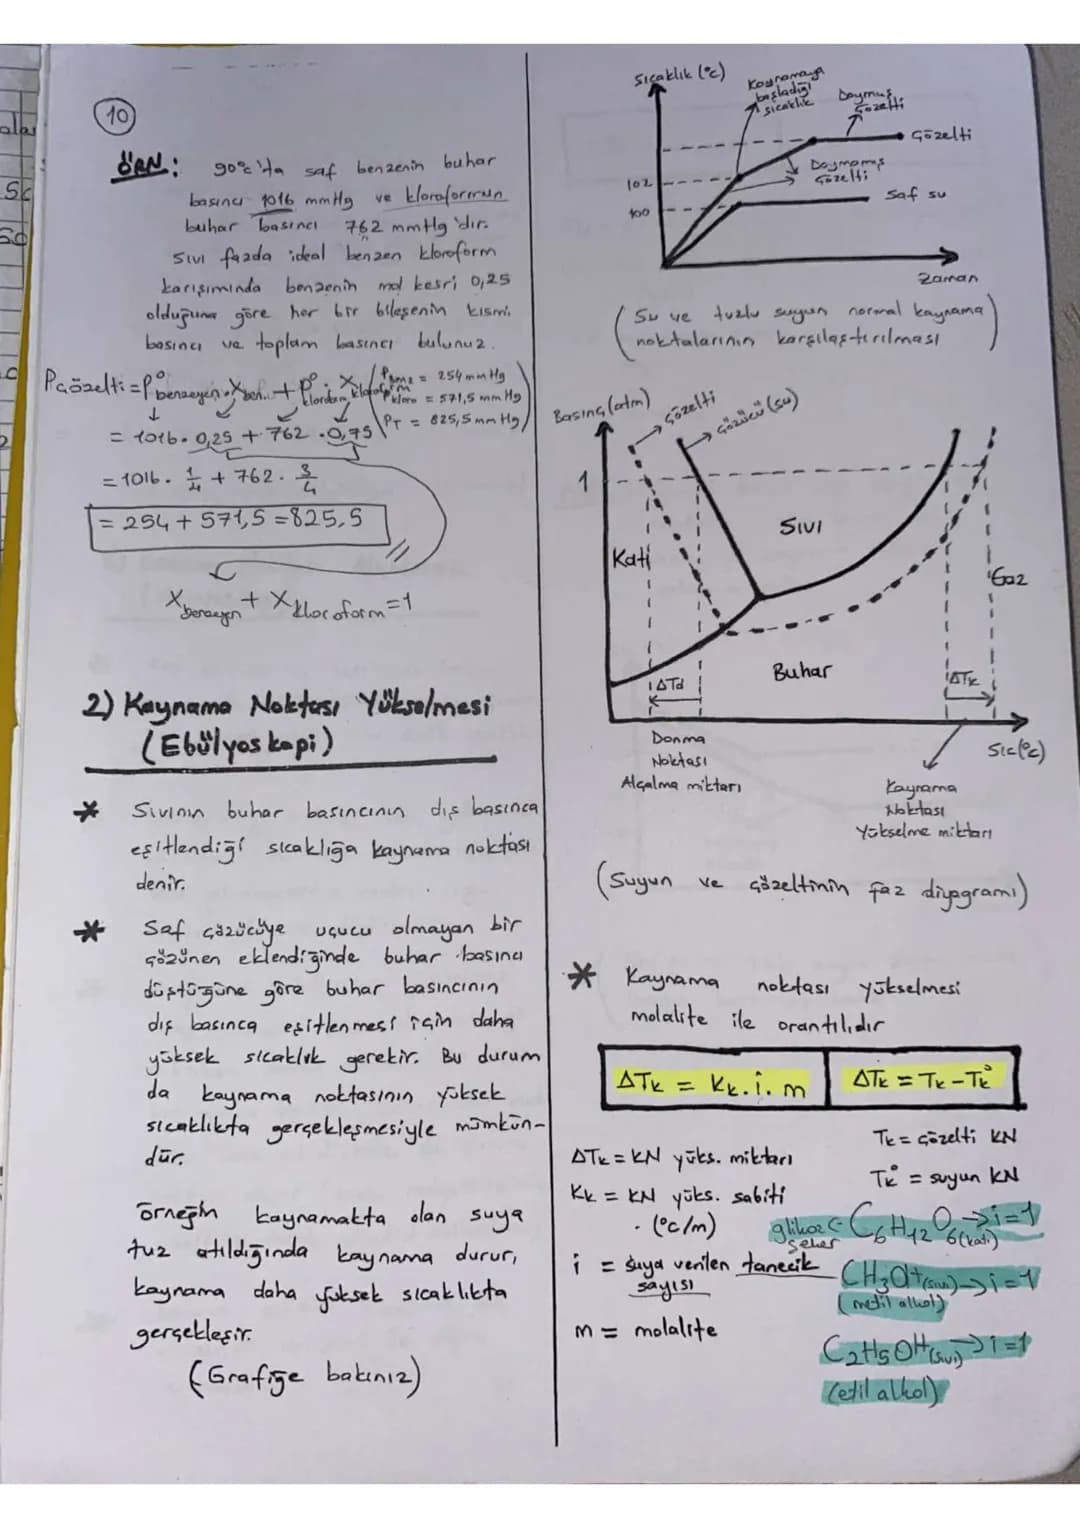 10
ÖRN: 90°c'ta saf benzenin buhar
basıncı 1016 mmHg ve kloroformun
buhar basıncı 762 mmHg'dır.
Sıvı fazda ideal benzen kloroform
karışımında benzenin mol kesri 0,25
olduğuna göre her bir bileşenin kısmi
basıncı ve toplam basıncı bulunuz.
= 254 mmHg
= 571,5 mmHg
PT = 825,5 mmHg
= 1016. 0,25 + 762 .0,75
= 1016. 1/4 + 762. 3/4
= 254 + 571,5 = 825,5
Xbenzeyen + Xkloroform = 1
2) Kaynama Noktası Yükselmesi
(Ebülyoskopi)
* Sıvının buhar basıncının dış basınca
eşitlendiği sıcaklığa kaynama noktası
denir.
* Saf çözücüye uçucu olmayan bir
çözünen eklendiğinde buhar basıncı
düştüğüne göre buhar basıncının
dış basınca eşitlenmesi için daha
yüksek sıcaklık gerekir. Bu durum
da kaynama noktasının yüksek
sıcaklıkta gerçekleşmesiyle mümkün-
dür.
Örneğin kaynamakta olan suya
tuz atıldığında kaynama durur,
kaynama daha yüksek sıcaklıkta
gerçekleşir.
(Grafiğe bakınız)
Sıcaklık (°c)
Kaynamaya
başladığı
sıcaklık
Doymuş
çözelti
Çözelti
Doymamış
çözelti
102
100
Saf su
Zaman
(Su ve tuzlu suyun normal kaynama
noktalarının karşılaştırılması)
Basınç (atm)
çözelti
çözücü (su)
1
Sıvı
Katı
Gaz
Buhar
ΔTd
ΔTk
Sıc(°c)
Donma
Noktası
Alçalma miktarı
Kaynama
Noktası
Yükselme miktarı
(Suyun ve çözeltinin faz diyagramı)
* Kaynama noktası yükselmesi
molalite ile orantılıdır
ΔTk = Kk.i.m
ΔTk = Tk-Tk°
Tk = çözelti KN
Tk° = suyun KN
ΔTk = KN yüks. miktarı
Kk = KN yüks. sabiti
(°c/m)
i = suya verilen tanecik
sayısı
m = molalite
glikoz ← C6H12O6(katı) → i=1
şeker
CH3OH(sıvı) → i=1
(metil alkol)
C2H5OH(sıvı) → i=1
(etil alkol)